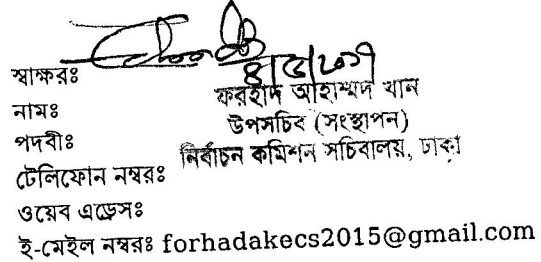 স্বাক্ষরঃ
নামঃ ফরহাদ আহাম্মদ খান
পদবীঃ উপসচিব (সংস্থাপন)
নির্বাচন কমিশন সচিবালয়, ঢাকা
টেলিফোন নম্বরঃ
ওয়েব এড্রেসঃ
ই-মেইল নম্বরঃ forhadakecs2015@gmail.com